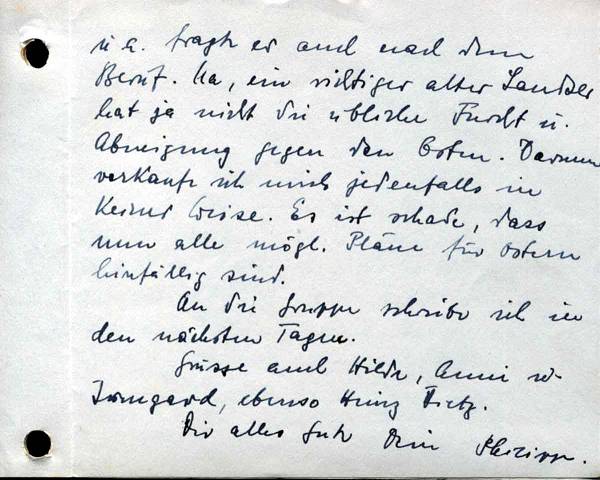 u. a. fragte er auch nach dem
Beruf. Na, ein richtiger alter Landser
hat ja nicht die übliche Furcht u.
Abneigung gegen den Osten. Darum
verkaufe ich mich jedenfalls in
keiner Weise. Es ist schade, dass
nun alle mögl. Pläne für Ostern
hinfällig sind.
An die Gruppe schreibe ich in
den nächsten Tagen.
Grüsse auch Hilde, Anni u.
Irmgard, ebenso Heinz Dietz.
Dir alles Gute Dein Philipp.